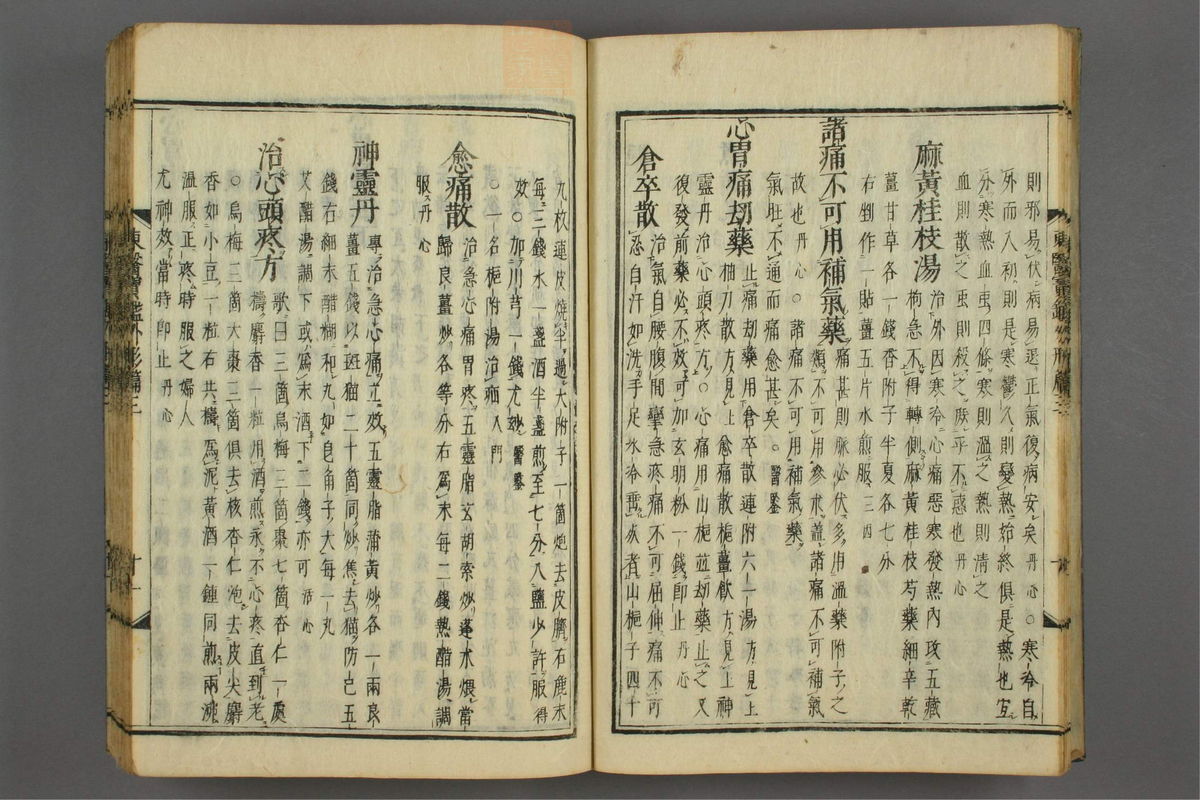 則邪易伏病易退正氣復病安矣丹心○寒冷自
外而入初則是寒鬱久則變熱始終俱是熱也宜
分寒熱血虫四條寒則溫之熱則清之
血則散之虫則殺之庶乎不惑也丹心
麻黃桂枝湯治外因寒冷心痛惡寒發熱內攻五藏
拘急不得轉側麻黃桂枝芍藥細辛乾
薑甘草各一錢香附子半夏各七分
右剉作一貼薑五片水煎服三四
諸痛不可用補氣藥痛甚則脈必伏多用溫藥附子之
類不可用參朮盖諸痛不可補氣
故也丹心○諸痛不可用補氣藥
氣旺不通而痛愈甚矣○醫鑒
心胃痛刧藥止痛刧藥用倉卒散連附六一湯方見上
柚刀散方見上愈痛散梔薑飮方見上神
靈丹治心頭疼方○心痛用山梔並刧藥止之又
復發前藥必不效可加玄明粉一錢卽止丹心
倉卒散治氣自腰腹間攣急疼痛不可屈伸痛不可
忍自汗如洗手足氷冷垂死者山梔子四十
九枚連皮燒半過大附子一箇炮去皮臍右麁末
每三錢水一盞酒半盞煎至七分入鹽少許服得
效○加川芎一錢尤妙醫鑒
○一名梔附湯治疝入門
愈痛散治急心痛胃疼五靈脂玄胡索炒蓬朮煨當
歸良薑炒各等分右爲末每二錢熱醋湯調
服丹心
神靈丹專治急心痛立效五靈脂蒲黃炒各一兩良
薑五錢以斑猫二十箇同炒焦去猫防己五
錢右細末醋糊和丸如皂角子大每一丸
艾醋湯調下或爲末酒下二錢亦可活心
治心頭疼方歌曰三箇烏梅三箇棗七箇杏仁一處
擣麝香一粒用酒煎永不心疼直到老
○烏梅三箇大棗三箇俱去核杏仁泡去皮尖麝
香如小豆一粒右共擣爲泥黃酒一鍾同煎兩沸
溫服正疼時服之婦人
尤神效當時卽止丹心